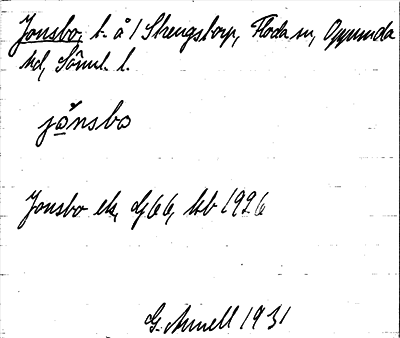 Jonsbo, t. å / Skengstorp, Floda sn, Oppunda
hd, Söml. l.
jónsbo
Jonsbo ek, dg 66, hb 1926
G. Annell 1931